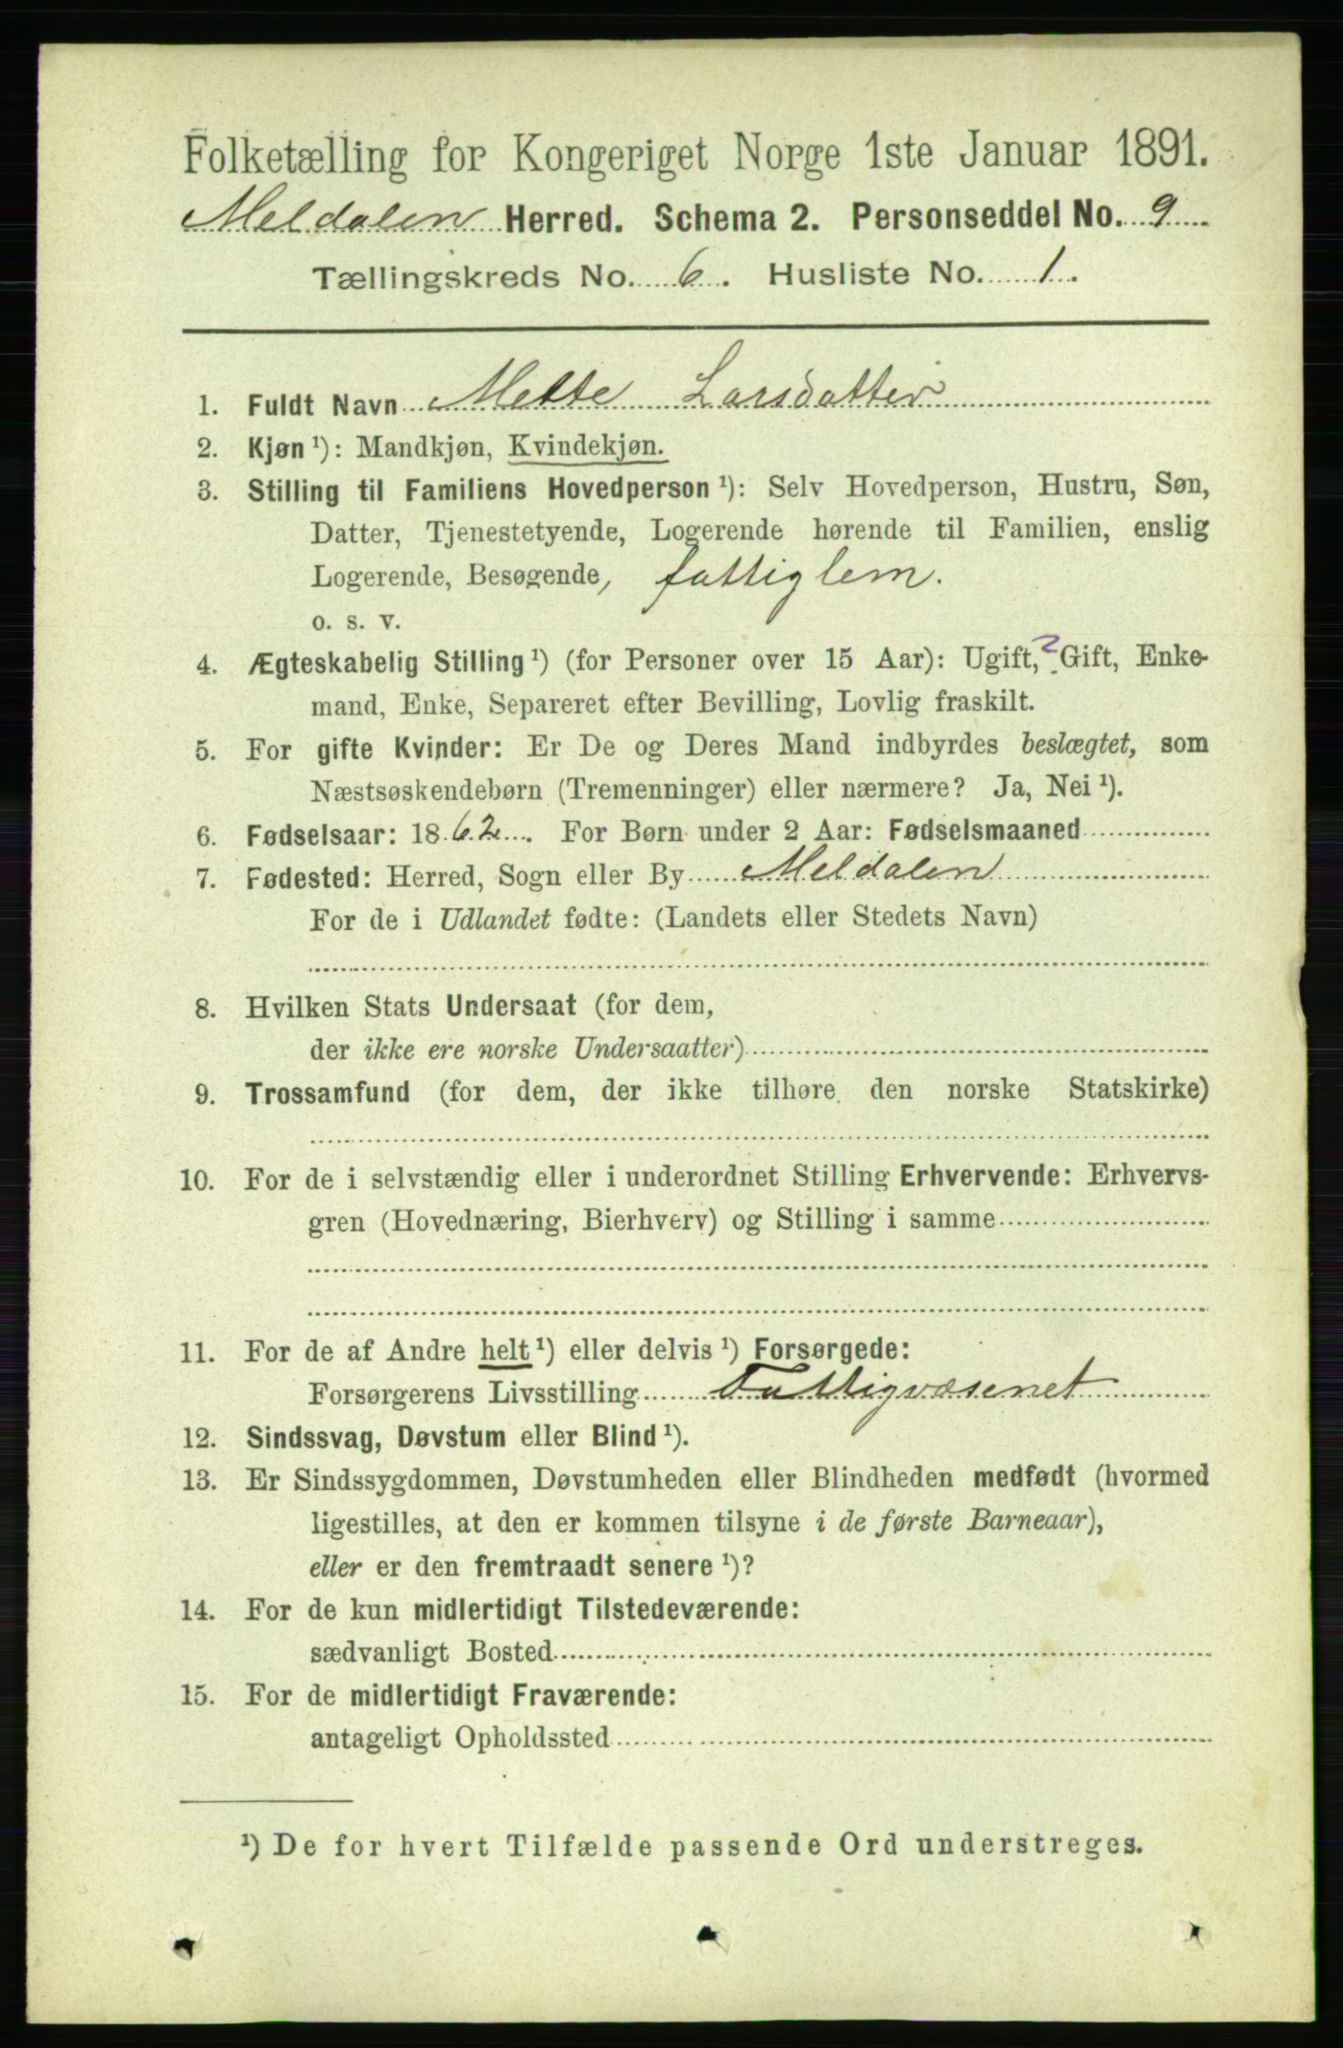 Folketælling for Kongeriget Norge 1ste Januar 1891.
Meldalen Herred. Schema 2. Personseddel No. 9
Tællingskreds No. 6. Husliste No. 1.
1. Fuldt Navn Mette Larsdatter
2. Kjøn ¹): Mandkjøn, Kvindekjøn.
3. Stilling til Familiens Hovedperson ¹): Selv Hovedperson, Hustru, Søn,
Datter, Tjenestetyende, Logerende hørende til Familien, enslig
Logerende, Besøgende, fattiglem.
o. s. v.
4. Ægteskabelig Stilling ¹) (for Personer over 15 Aar): Ugift, ? Gift, Enke-
mand, Enke, Separeret efter Bevilling, Lovlig fraskilt.
5. For gifte Kvinder: Er De og Deres Mand indbyrdes beslægtet, som
Næstsøskendebørn (Tremenninger) eller nærmere? Ja, Nei ¹).
6. Fødselsaar: 1862. For Børn under 2 Aar: Fødselsmaaned
7. Fødested: Herred, Sogn eller By Meldalen
For de i Udlandet fødte: (Landets eller Stedets Navn)
8. Hvilken Stats Undersaat (for dem,
der ikke ere norske Undersaatter)
9. Trossamfund (for dem, der ikke tilhøre den norske Statskirke)
10. For de i selvstændig eller i underordnet Stilling Erhvervende: Erhvervs-
gren (Hovednæring, Bierhverv) og Stilling i samme
11. For de af Andre helt ¹) eller delvis ¹) Forsørgede:
Forsørgerens Livsstilling Fattigvæsenet
12. Sindssvag, Døvstum eller Blind ¹).
13. Er Sindssygdommen, Døvstumheden eller Blindheden medfødt (hvormed
ligestilles, at den er kommen tilsyne i de første Barneaar),
eller er den fremtraadt senere ¹)?
14. For de kun midlertidigt Tilstedeværende:
sædvanligt Bosted
15. For de midlertidigt Fraværende:
antageligt Opholdssted
¹) De for hvert Tilfælde passende Ord understreges.